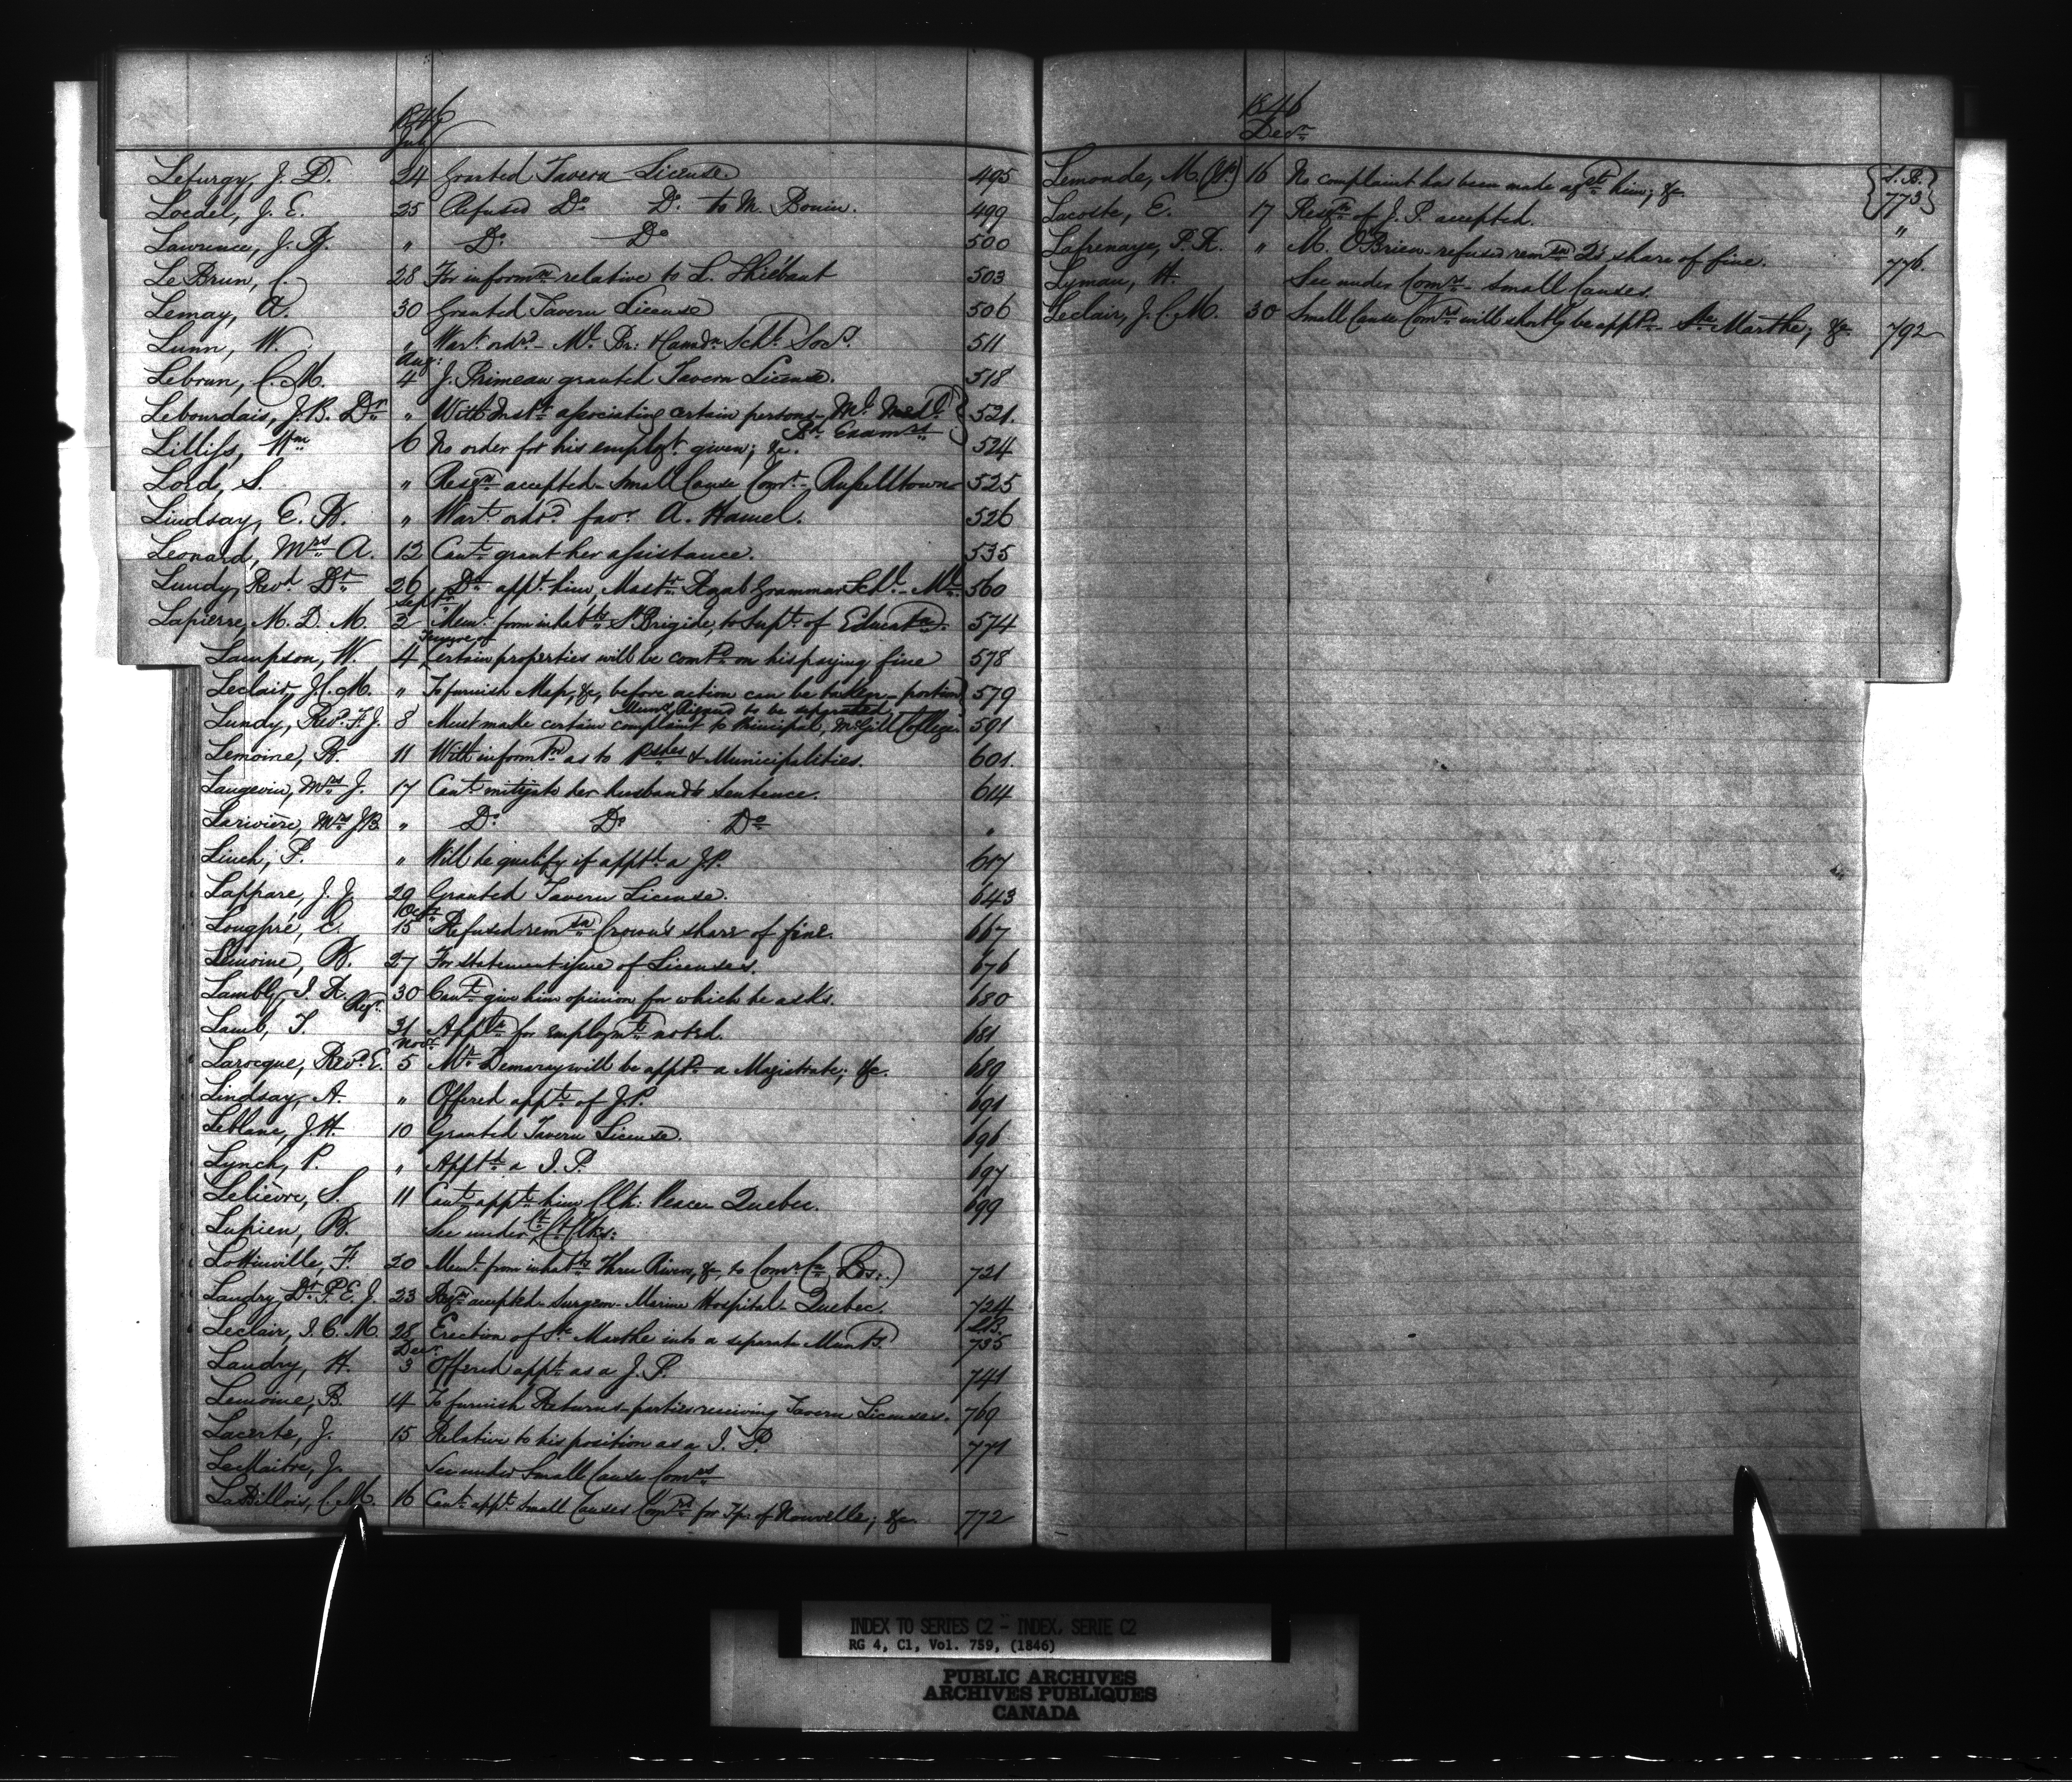 1846
July
Lefurgy, J. D. 24 Granted Tavern License 495
Loedel, J. E. 25 Refused Do Do to M. Bonin. 499
Lawrence, J. R. " Do Do 500
LeBrun, C. 28 For informn relative to L. Thiébaut 503
Lemay, A. 30 Granted Tavern License 506
Lunn, W. " Wart ordd - Ml Br: & Canadn Schl Socy. 511
Aug:
Lebrun, C. M. 4 J. Primeau granted Tavern License. 518
Lebourdais, J. B. Dr " With Inst associating certain persons - Ml Medl 521.
Bd Examrs
Lilliss, Wm 6 No order for his employt given; &c. 524
Lord, S. " Resgn accepted - Small Cause Comr - Russelltown 525
Lindsay, E. R. " Wart ordd favr A. Hamel. 526
Leonard, Mrs A. 12 Cant grant her assistance. 535
Lundy, Revd Dr 26 Do appt him Mastr Royal Grammar Schl - Ml 560
Septr
Lapierre, M. D. M. 2 Meml from inhabts St Brigide, to Supt of Educatn 574
Tenure of
Lampson, W. 4 Certain properties will be comd on his paying fine 578
Leclair, J. C. M. " To furnish Map, &c, before action can be taken - portion 579
Munx Rigaud to be separated
Lundy, Revd F. J. 8 Must make certain complaint to Principal, McGill College 591
Lemoine, B. 11 With informn as to Pshes & Municipalities. 601.
Langevin, Mrs J. 17 Cant mitigate her husband's sentence. 614
Larivière, Mrs J. B. " Do Do Do "
Linch, P. " Will he qualify if apptd a J.P. 617
Lappare, J. J. 29 Granted Tavern License. 643
Octr
Longpré, C. 15 Refused remssn Crown's share of fine. 667
Lemoine, B. 27 For statement issue of Licenses. 676
Lambly, J. R. Regr. 30 Cant give him opinion for which he asks. 680
Lamb, T 31 Appln for employmt noted. 681
Novr
Larocque, Revd E. 5 Mr Demaray will be apptd a Magistrate; &c. 689
Lindsay, A. " Offered appt of J.P. 691
Leblanc, J. H. 10 Granted Tavern License. 696
Lynch, P. " Apptd a J. P. 697
Lelièvre, S. 11 Cant appt him Clk: Peace Quebec. 699
Lupien, B. See under Ct Clks:
Lottinville, F. 20 Meml from inhabts Three Rivers, &c, to Comr Cn Lds.) 721
Landry, Dr P. E. J. 23 Resgn accepted - Surgeon - Marine Hospital - Quebec. 724
L.B.
Leclair, J. C. M. 28 Erection of Ste Marthe into a separate Munty. 735
Decr
Landry, H. 3 Offered appt as a J. P. 741
Lemoine, B. 14 To furnish Returns - parties receiving Tavern Licenses. 769
Lacerte, J. 15 Relative to his position as a J. P. 771
LeMaitre, J. See under Small Cause Comrs
LaBillois, C. M. 16 Cant appt Small Causes Comrs for Tp. of Nouvelle; &c. 772
1846
Decr
Lemonde, M. 16 No complaint has been made agst him; &c. L.B. 773
Lacoste, E. 17 Resgn of J. P. accepted. "
Lafrenaye, P. R. " M. O'Brien refused remssn Qs share of fine. 776.
Lyman, H. See under Comrs - Small Causes.
Leclair, J. C. M. 30 Small Cause Comrs will shortly be apptd - Ste Marthe; &c. 792
INDEX TO SERIES C2 - INDEX, SERIE C2
RG 4, C1, Vol. 759, (1846)
PUBLIC ARCHIVES
ARCHIVES PUBLIQUES
CANADA